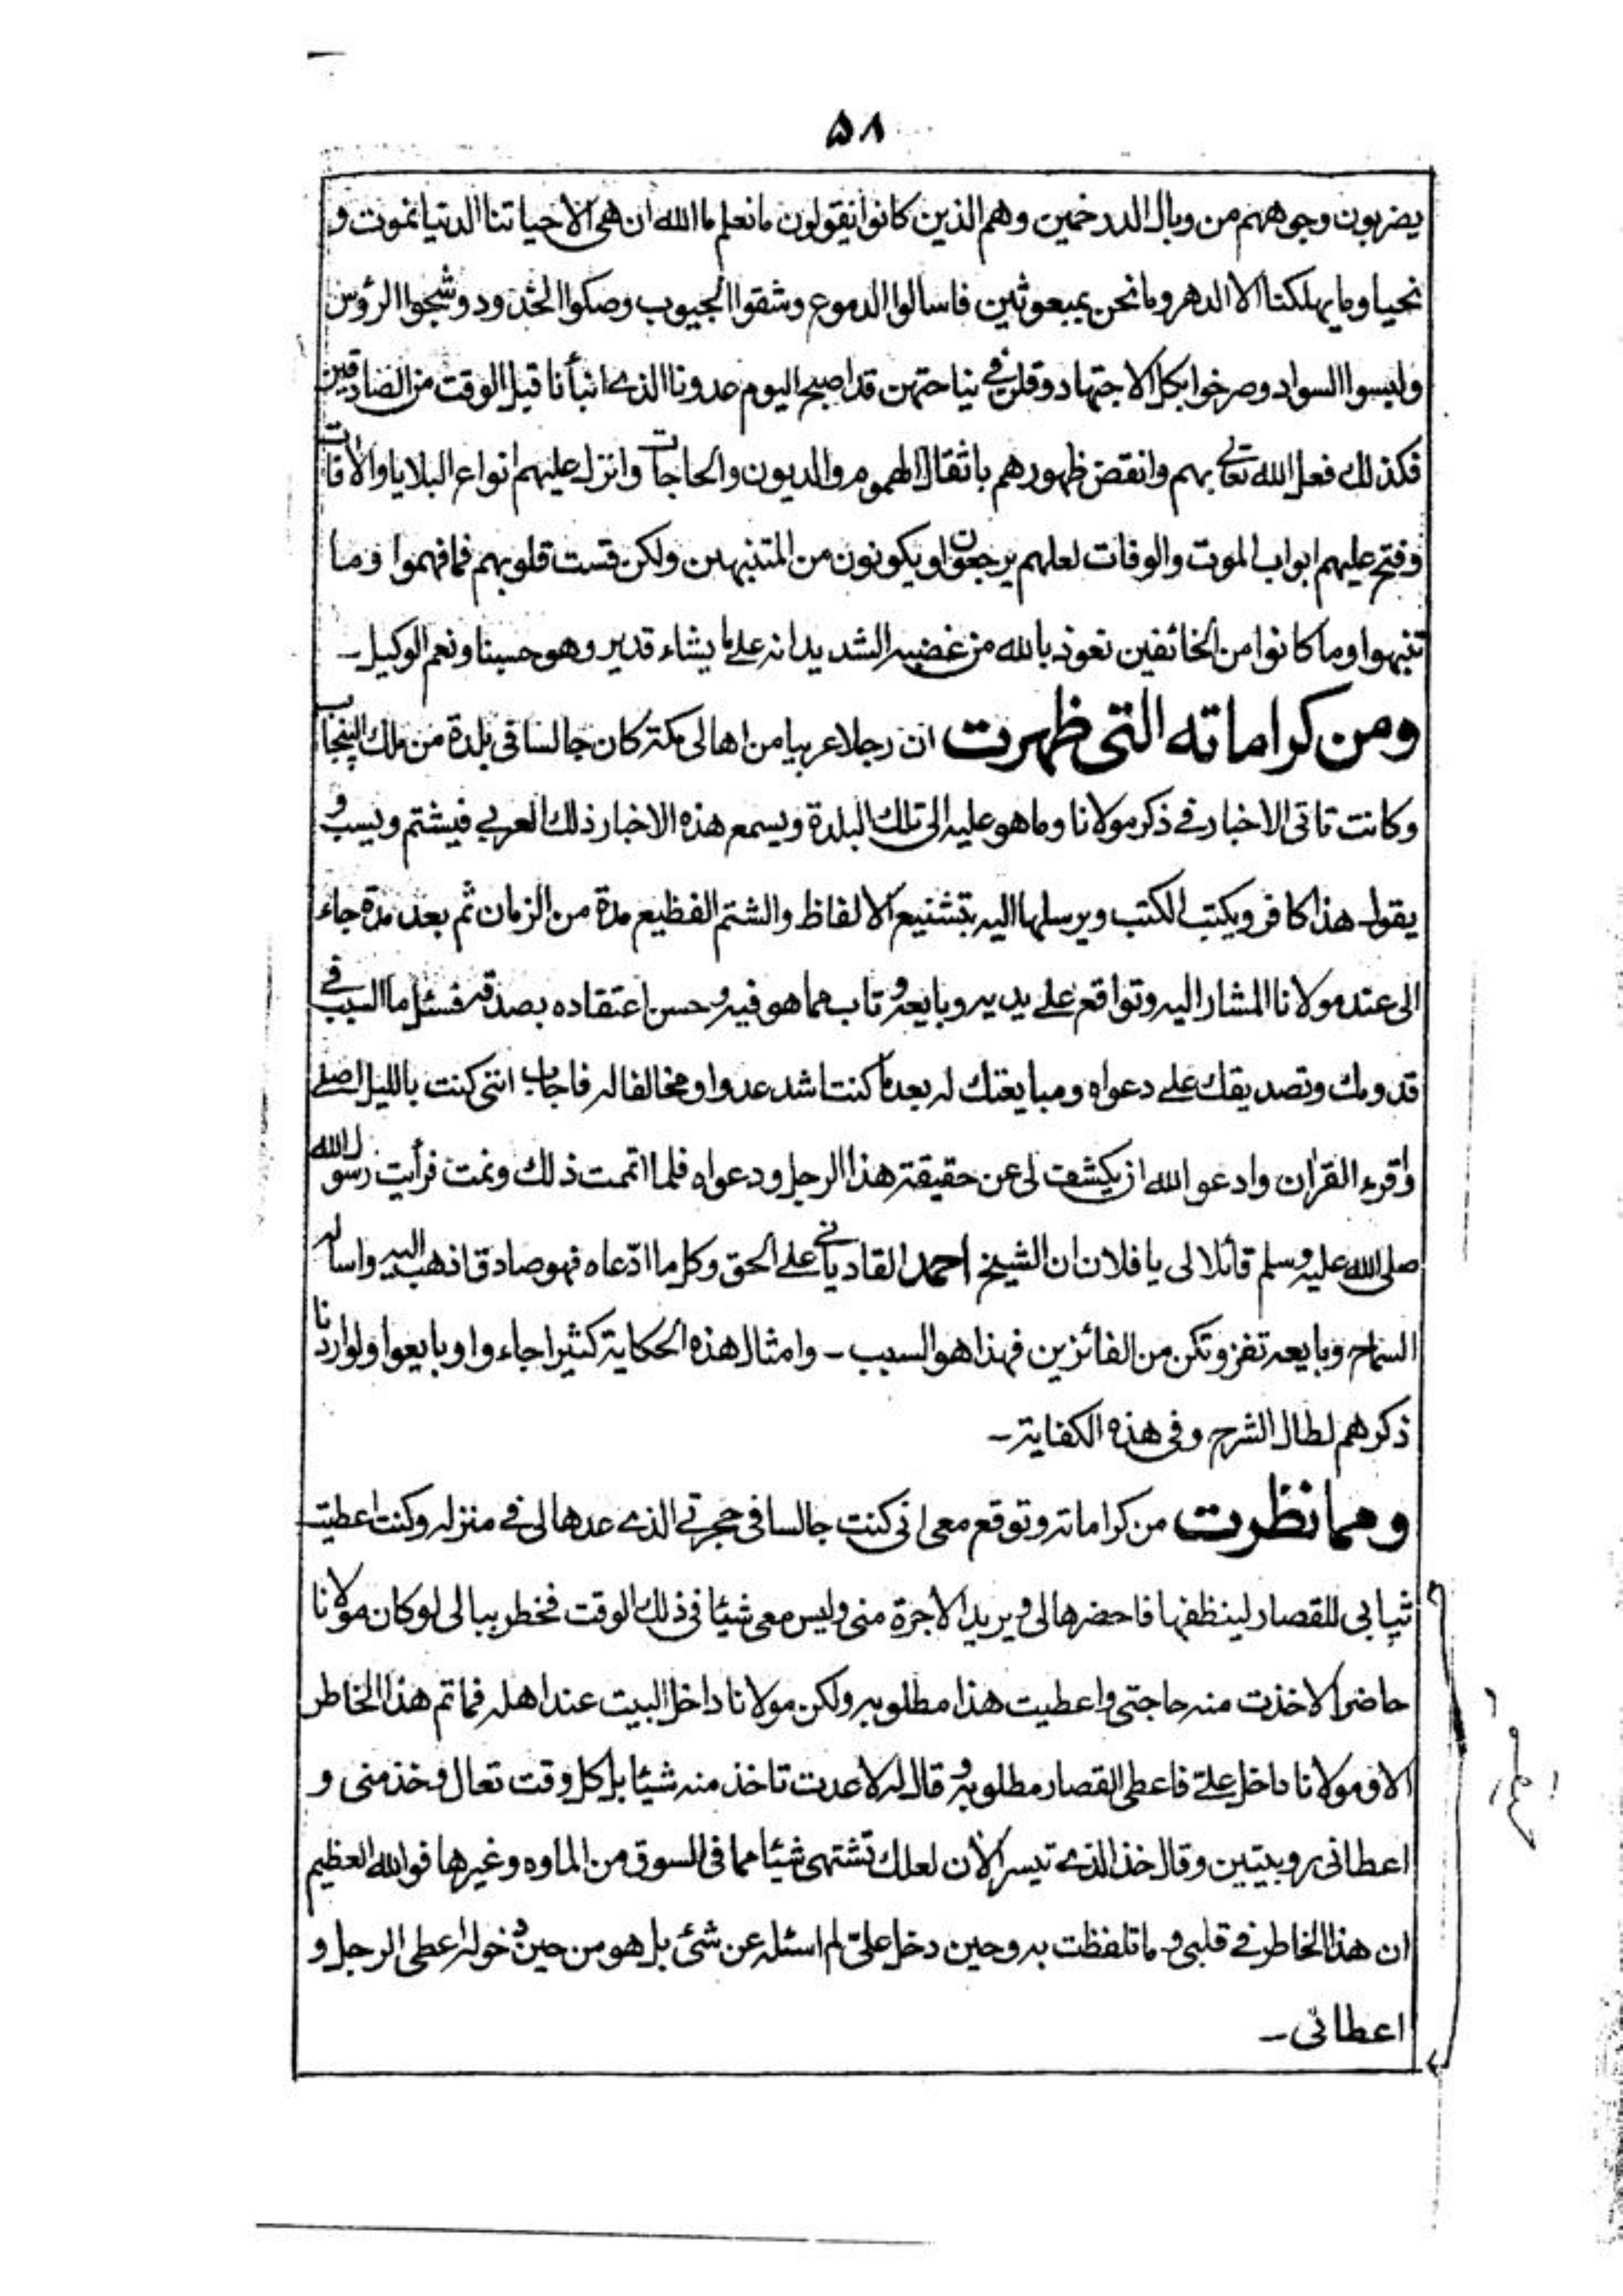 ۵۸
يضربون وجوههم من وبال الدرخمين وهم الذين كانوا يقولون مانعلم ما الله ان هى الاحياتنا الدنيا نموت و
نحيا وما يهلكنا الا الدهر وما نحن بمبعوثين فاسالوا الدموع وشقوا الجيوب وصكوا الخدود وشجوا الرؤس
ولبسوا السواد وصرخوا بكل الاجتهاد وقلن في نياحتهن قد اصبح اليوم عدونا الذے انبأنا قبل الوقت من الصادقين
فكذلك فعل الله تعالى بهم وانقض ظهورهم باثقال الهموم والديون والحاجات وانزل عليهم انواع البلايا والأفات
وفتح عليهم ابواب الموت والوفات لعلهم يرجعون او يكونون من المتنبهين ولكن قست قلوبهم فما فهموا وما
تنبهوا وما كانوا من الخائفين نعوذ بالله من غضبه الشديد انه علے ما يشاء قدير وهو حسبنا ونعم الوكيل۔
ومن كراماته التى ظهرت ان رجلا عربيا من اهالى مكة كان جالسا فى بلدة من ملك البنجاب
وكانت تاتى الاخبار فے ذكر مولانا وما هو عليه الى تلك البلدة ويسمع هذه الاخبار ذلك العربي فيشتم ويسب و
يقول هذا كافر ويكتب الكتب ويرسلها اليه بتشنيع الالفاظ والشتم الفظيع مدة من الزمان ثم بعد مدة جاء
الى عند مولانا المشار اليه وتواقع علے يديه وبايعه وتاب مما هو فيه وحسن اعتقاده بصدقه فسئل ما السبب فے
قدومك وتصديقك علے دعواه ومبايعتك له بعد ما كنت اشد عدوا ومخالفا له فاجاب اننى كنت بالليل اصلے
واقرء القران وادعو الله ان يكشف لى عن حقيقة هذا الرجل ودعواه فلما اتممت ذلك ونمت فرأيت رسول الله
صلى الله عليه وسلم قائلا لى يا فلان ان الشيخ احمد القاديانے علے الحق وكل ما ادّعاه فهو صادق اذهب اليه واساله
السماح وبايعه تفز وتكن من الفائزين فهذا هو السبب۔ وامثال هذه الحكاية كثيرا جاءوا وبايعوا ولو اردنا
ذكرهم لطال الشرح وفى هذه الكفاية۔
ومما نظرت من كراماته وتوقع معى انى كنت جالسا فى حجرتے الذے عدها لى فے منزله وكنت اعطيت
ثيابى للقصار لينظفها فاحضرها لى ويريد الاجرة منى وليس معى شيئا فى ذلك الوقت فخطر ببالى لو كان مولانا
حاضرا لاخذت منه حاجتى واعطيت هذا مطلوبه ولكن مولانا داخل البيت عند اهله فما تم هذا الخاطر
الا ومولانا داخل علىّ فاعطى القصار مطلوبه وقال له لا عدت تاخذ منه شيئا بل كل وقت تعال وخذ منى و
اعطانى روبيتين وقال خذ الذے تيسر الأن لعلك تشتهى شيئا مما فى السوق من الماوه وغيرها فوالله العظيم
ان هذا الخاطر فے قلبى وما تلفظت به وحين دخل علىّ لم اسئله عن شئ بل هو من حين دخوله اعطى الرجل و
اعطانى۔